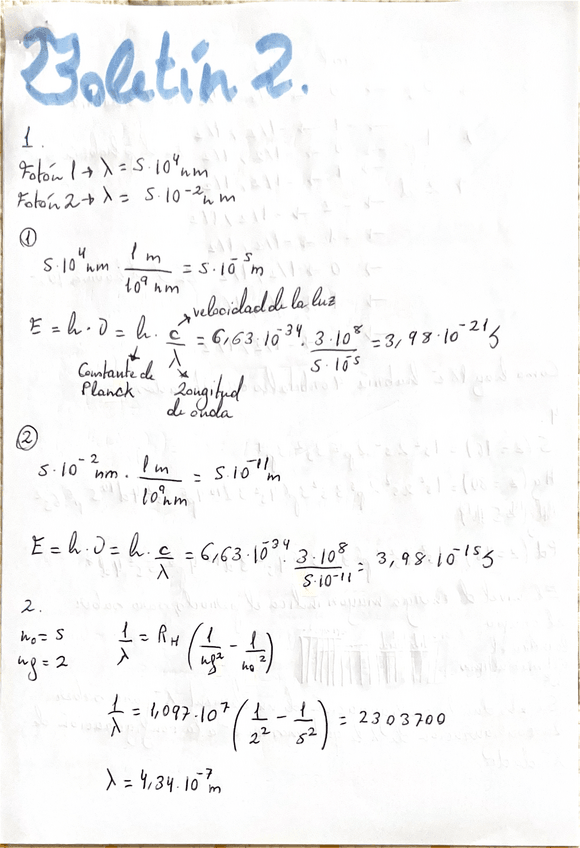 Boletín 2.
1.
Fotón 1 → λ = 5·10⁴ nm
Fotón 2 → λ = 5·10⁻² nm
①
5·10⁴ nm · 1 m / 10⁹ nm = 5·10⁻⁵ m
velocidad de la luz
E = h·ν = h · c/λ = 6,63·10⁻³⁴ · 3·10⁸ / 5·10⁻⁵ = 3,98·10⁻²¹ J
Constante de Planck
Longitud de onda
②
5·10⁻² nm · 1 m / 10⁹ nm = 5·10⁻¹¹ m
E = h·ν = h · c/λ = 6,63·10⁻³⁴ · 3·10⁸ / 5·10⁻¹¹ = 3,98·10⁻¹⁵ J
2.
n₀ = 5
nf = 2
1/λ = R_H (1/nf² - 1/n₀²)
1/λ = 1,097·10⁷ (1/2² - 1/5²) = 2303700
λ = 4,34·10⁻⁷ m